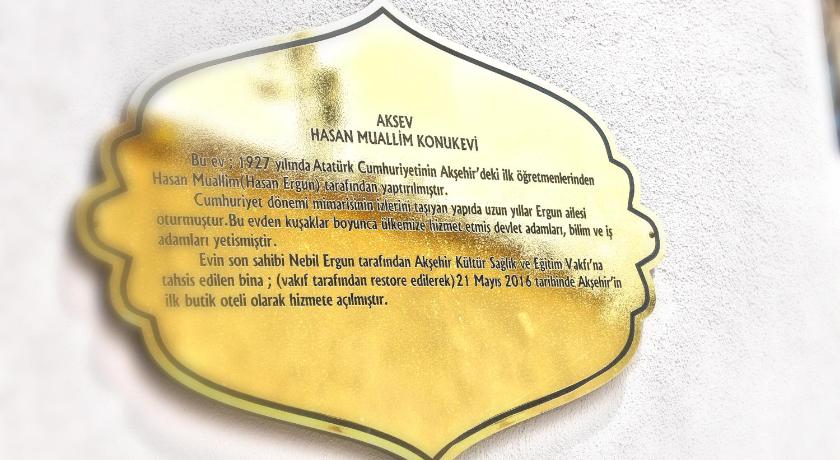 AKSEV
HASAN MUALLİM KONUKEVİ
Bu ev ; 1927 yılında Atatürk Cumhuriyetinin Akşehir'deki ilk öğretmenlerinden
Hasan Muallim(Hasan Ergun) tarafından yaptırılmıştır.
Cumhuriyet dönemi mimarisinin izlerini taşıyan yapıda uzun yıllar Ergun ailesi
oturmuştur.Bu evden kuşaklar boyunca ülkemize hizmet etmiş devlet adamları, bilim ve iş
adamları yetismiştir.
Evin son sahibi Nebil Ergun tarafından Akşehir Kültür Sağlık ve Eğitim Vakfı'na
tahsis edilen bina ; (vakıf tarafından restore edilerek)21 Mayıs 2016 tarihinde Akşehir'in
ilk butik oteli olarak hizmete açılmıştır.